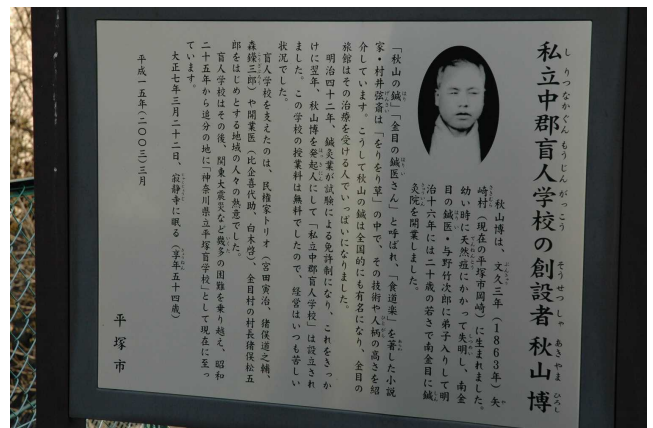 私立中郡盲人学校の創設者 秋山博
しりつなかぐんもうじんがっこう そうせつしゃ あきやま ひろし
秋山博は、文久三年(1863年)矢
崎村(現在の平塚市岡崎)に生まれました。
幼い時に天然痘にかかって失明し、南金
目の鍼医・与野竹次郎に弟子入りして明
治十六年には二十歳の若さで南金目に鍼
灸院を開業しました。
「秋山の鍼」「金目の鍼医さん」と呼ばれ、「食道楽」を著した小説
家・村井弦斎は「をりをり草」の中で、その技術や人柄の高さを紹
介しています。こうして秋山の鍼は全国的にも有名になり、金目の
旅館はその治療を受ける人でいっぱいになりました。
明治四十二年、鍼灸業が試験による免許制になり、これをきっか
けに翌年、秋山博を発起人にして「私立中郡盲人学校」は設立され
ました。この学校の授業料は無料でしたので、経営はいつも苦しい
状況でした。
盲人学校を支えたのは、民権家トリオ(宮田寅治、猪俣道之輔、
森鑅三郎)や開業医(比企喜代助、白木啓)、金目村の村長猪俣松五
郎をはじめとする地域の人々の熱意でした。
盲人学校はその後、関東大震災など幾多の困難を乗り越え、昭和
二十五年から追分の地に「神奈川県立平塚盲学校」として現在に至っ
ています。
大正七年三月二十二日、寂静寺に眠る(享年五十四歳)
平成一五年(二〇〇三)三月
平塚市